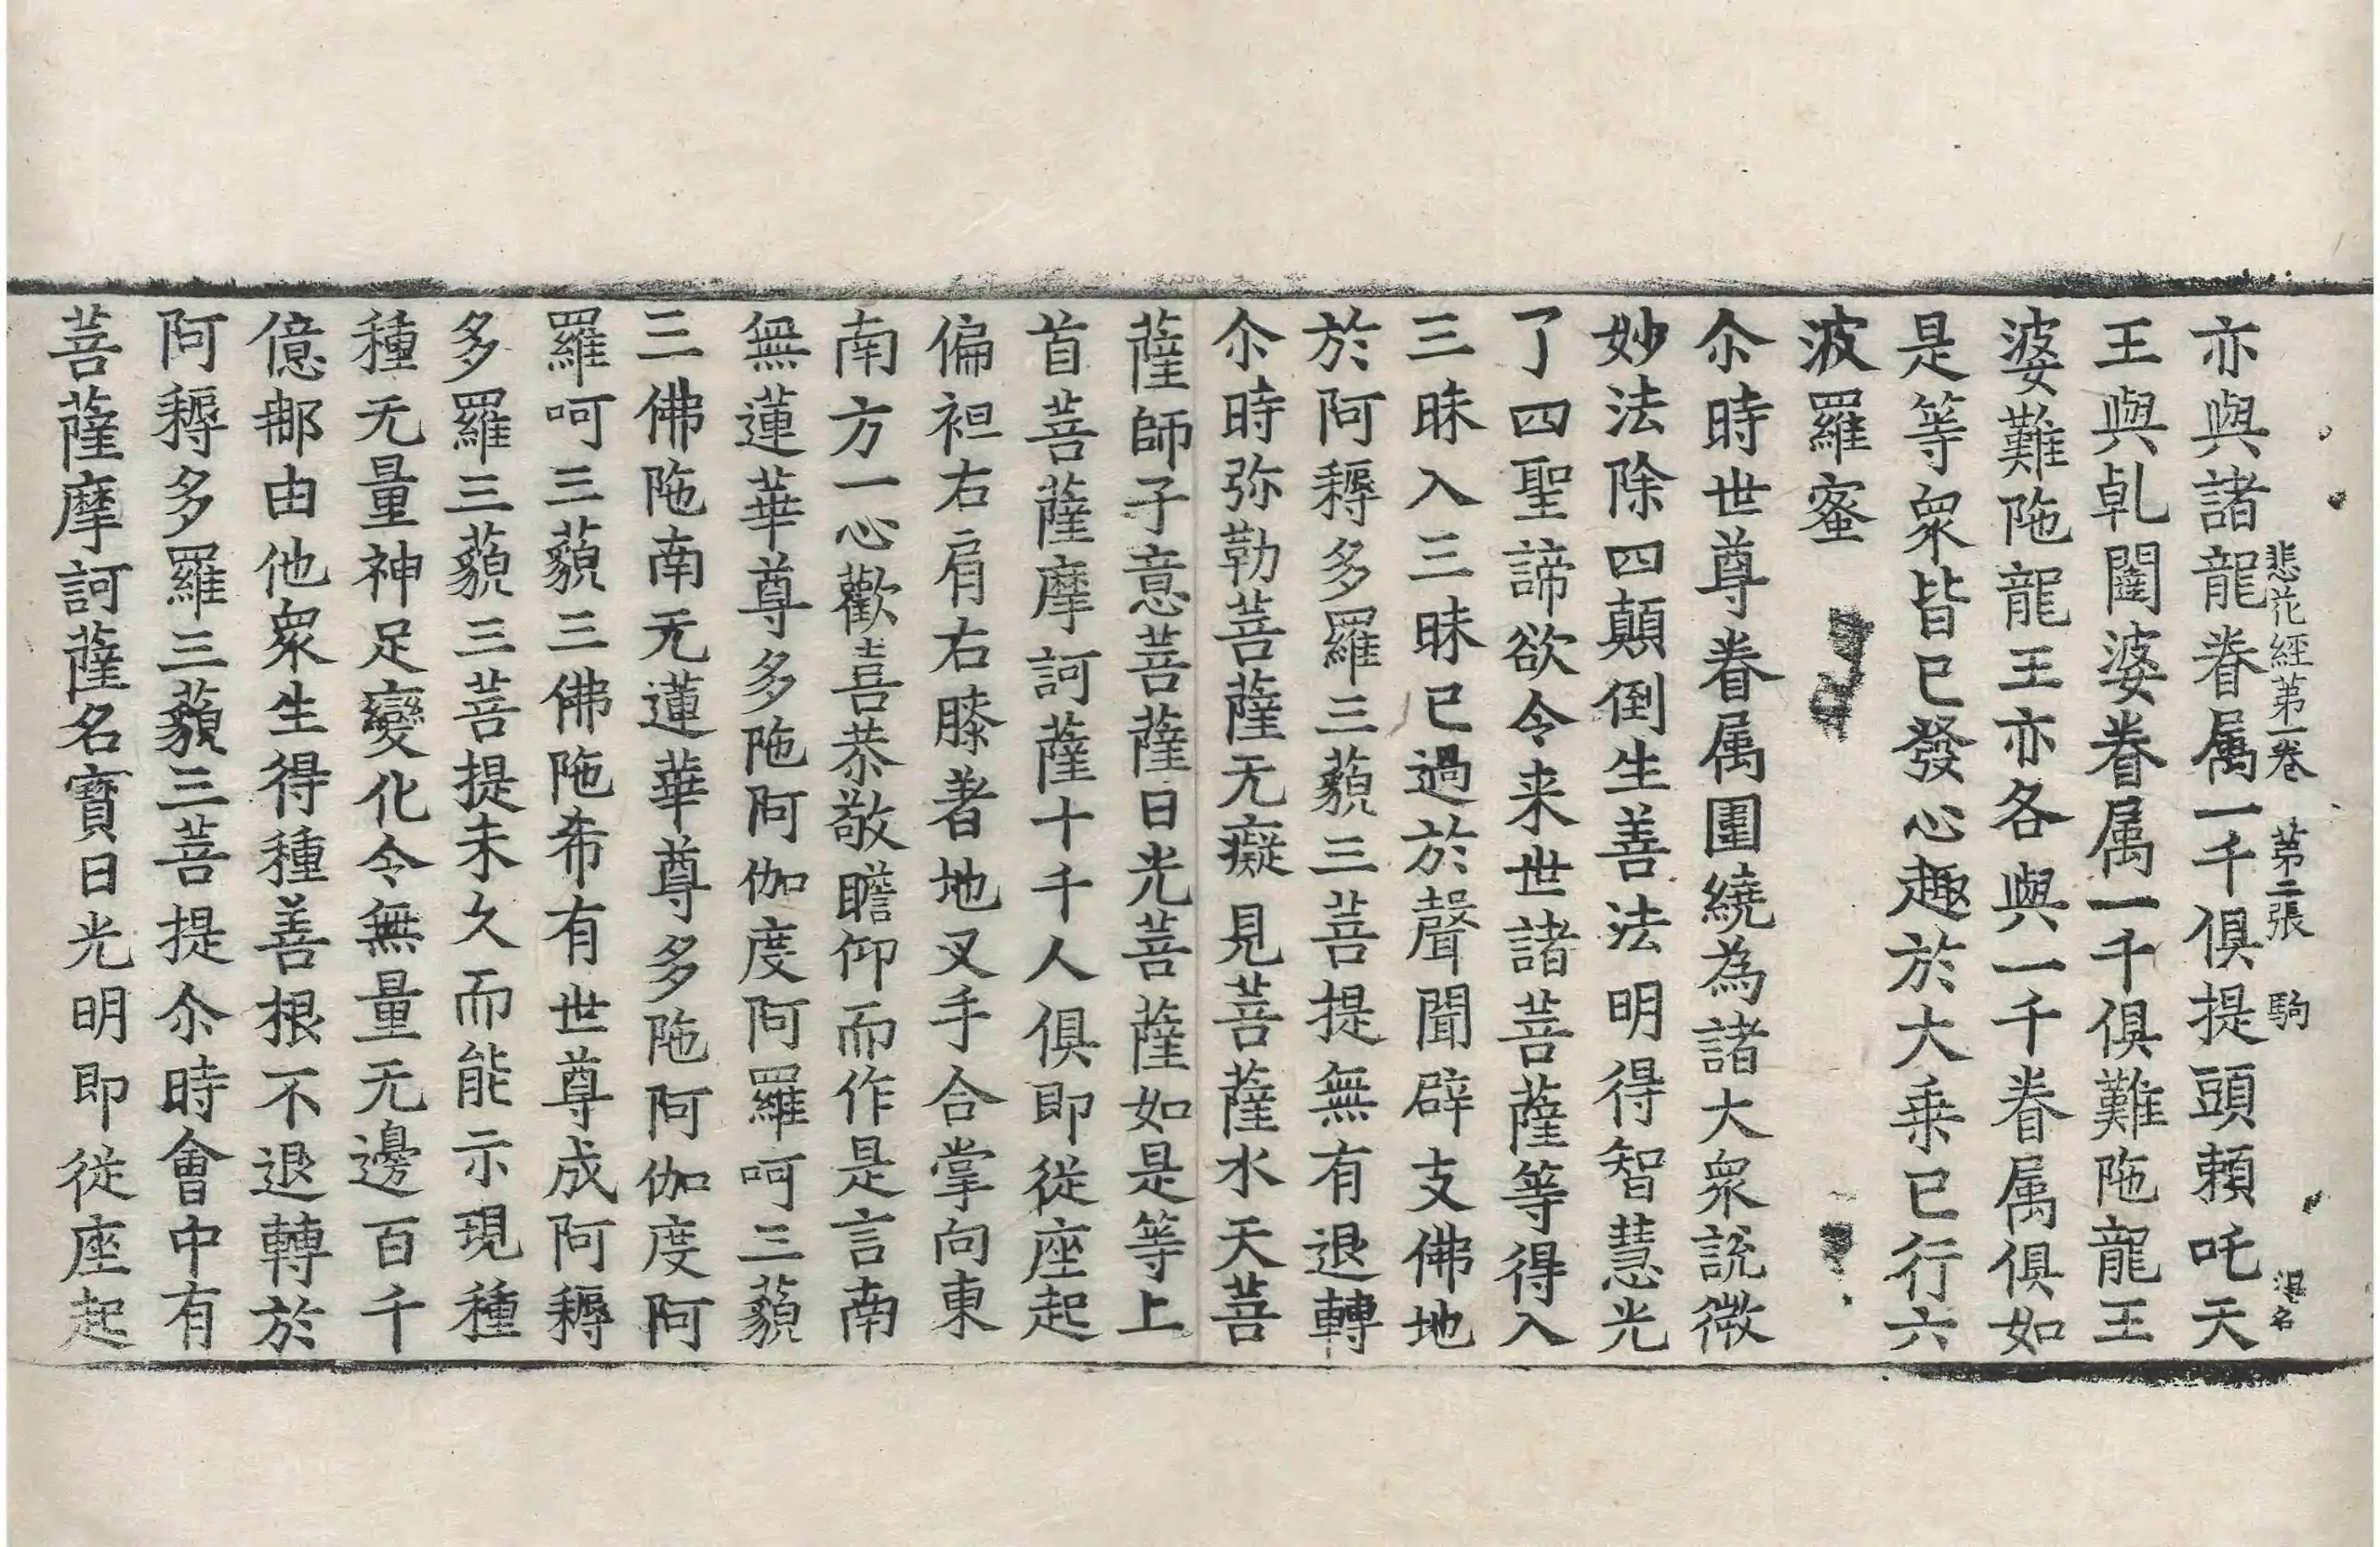 悲花經第一卷 第二張 駒
亦與諸龍眷属一千俱提頭頼吒天
王與乹闥婆眷属一千俱難陁龍王
婆難陁龍王亦各與一千眷属俱如
是等衆皆已發心趣於大乗已行六
波羅蜜
尒時世尊眷属圍繞為諸大衆説微
妙法除四顛倒生善法明得智慧光
了四聖諦欲令来世諸菩薩等得入
三昧入三昧已過於聲聞辟支佛地
於阿耨多羅三藐三菩提無有退轉
尒時弥勒菩薩无癡見菩薩水天菩
薩師子意菩薩日光菩薩如是等上
首菩薩摩訶薩十千人俱即従座起
偏袒右肩右膝著地叉手合掌向東
南方一心歡喜恭敬瞻仰而作是言南
無蓮華尊多陁阿伽度阿羅呵三藐
三佛陁南无蓮華尊多陁阿伽度阿
羅呵三藐三佛陁希有世尊成阿耨
多羅三藐三菩提未久而能示現種
種无量神足變化令無量无邊百千
億那由他衆生得種善根不退轉於
阿耨多羅三藐三菩提尒時會中有
菩薩摩訶薩名寳日光明即従座起